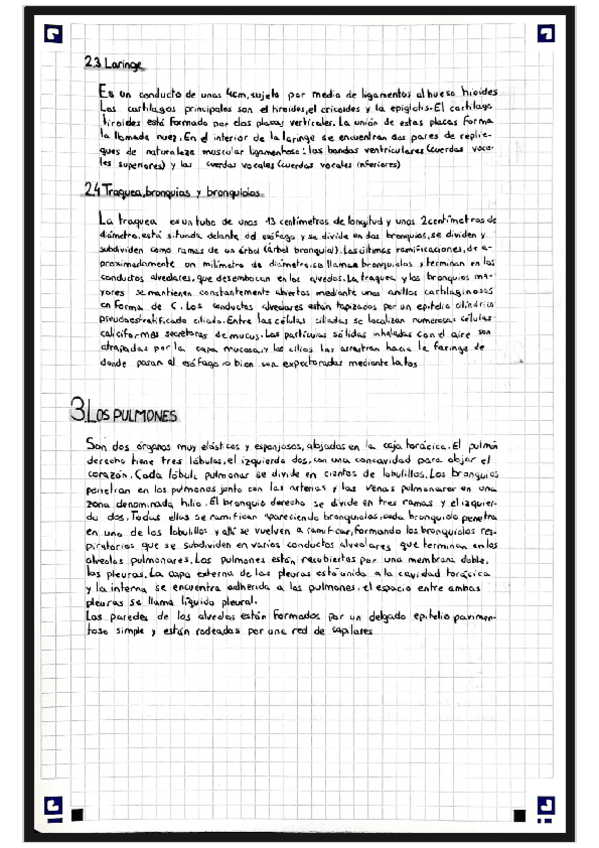 2.3 Laringe
Es un conducto de unos 4cm, sujeto por medio de ligamentos al hueso hioides
Los cartílagos principales son el tiroides, el cricoides y la epiglotis. El cartílago
tiroides está formado por dos placas verticales. La unión de estas placas forma
la llamada nuez. En el interior de la laringe se encuentran dos pares de replie-
gues de naturaleza muscular ligamentosa: las bandas ventriculares (cuerdas voca-
les superiores) y las cuerdas vocales (cuerdas vocales inferiores)
2.4 Traquea, bronquios y bronquiolos.
La traquea es un tubo de unos 13 centímetros de longitud y unos 2 centímetros de
diámetro, está situada delante del esófago y se divide en dos bronquios, se dividen y
subdividen como ramas de un árbol (árbol bronquial). Las últimas ramificaciones, de a-
proximadamente un milímetro de diámetro, se llaman bronquiolos y terminan en los
conductos alveolares, que desembocan en los alveolos. La traquea y los bronquios ma-
yores se mantienen constantemente abiertos mediante unos anillos cartilaginosos
en forma de C. Los conductos alveolares están tapizados por un epitelio cilíndrico
pseudoestratificado ciliado. Entre las células ciliadas se localizan numerosas células
caliciformes secretoras de mucus. Las partículas sólidas inhaladas con el aire son
atrapadas por la capa mucosa, y los cilios las arrastran hacia la faringe de
donde pasan al esófago o bien son expectoradas mediante la tos
3. LOS PULMONES
Son dos órganos muy elásticos y esponjosos, alojados en la caja torácica. El pulmón
derecho tiene tres lóbulos, el izquierdo dos, con una concavidad para alojar el
corazón. Cada lóbulo pulmonar se divide en cientos de lobulillos. Los bronquios
penetran en los pulmones junto con las arterias y las venas pulmonares en una
zona denominada hilio. El bronquio derecho se divide en tres ramas y el izquier-
do dos. Todas ellas se ramifican apareciendo bronquiolos, cada bronquiolo penetra
en uno de los lobulillos y allí se vuelven a ramificar, formando los bronquiolos res-
piratorios que se subdividen en varios conductos alveolares que terminan en los
alveolos pulmonares. Los pulmones están recubiertos por una membrana doble,
las pleuras. La capa externa de las pleuras está unida a la cavidad torácica
y la interna se encuentra adherida a los pulmones, el espacio entre ambas
pleuras se llama líquido pleural.
Las paredes de los alveolos están formados por un delgado epitelio pavimen-
toso simple y están rodeadas por una red de capilares